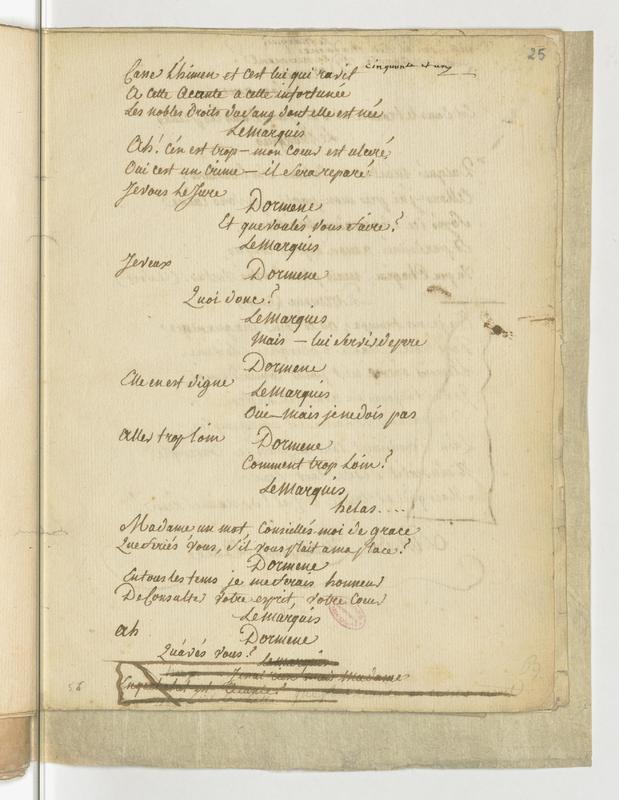 25
cinquante et un
Casse L'himen et cest lui qui ravit
A cette Acante a cette infortunée
Les nobles Droits du sang dont elle est née
Le Marquis
Ah! c'en est trop — mon Coeur est ulceré
Oui cest un Crime — il sera reparé
Je vous Le Jure
Dormene
Et que voulés vous faire?
Le Marquis
Je veux
Dormene
Quoi donc?
Le Marquis
Mais — lui servir de pere
Dormene
Elle en est digne
Le Marquis
Oui — Mais je ne dois pas
aller trop loin
Dormene
Comment trop Loin?
Le Marquis
helas....
Madame un mot, Conseillés-moi de grace
Que feriés vous, s'il vous plait a ma place?
Dormene
En tous les tems je me ferais honneur
De Consulter votre esprit, votre Coeur
Le Marquis
Ah
Dormene
Qu'avés vous?
Le Marquis
J'ai rien mais Madame
Acante?
56